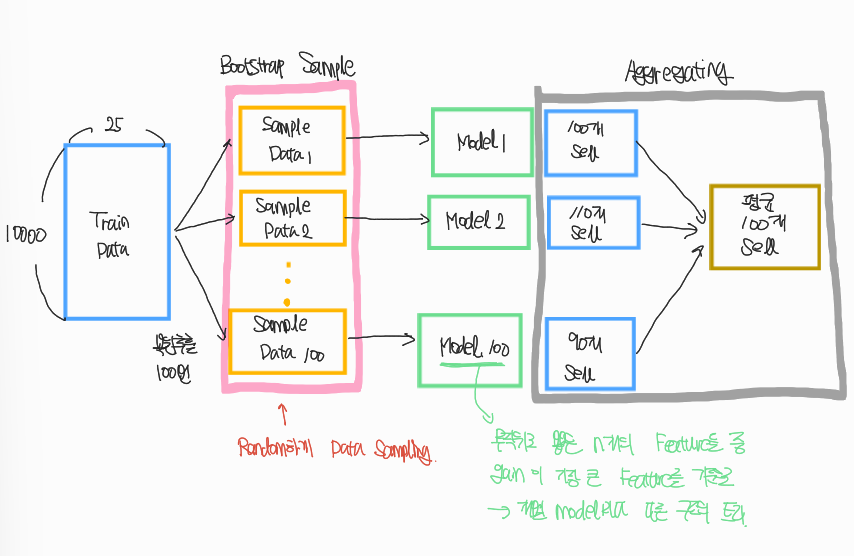 Bootstrap Sample
Aggregating
25
10000
Train
Data
Sample
Data 1
Sample
Data 2
Sample
Data 100
Model 1
Model 2
Model 100
100개
Sell
110개
Sell
90개
Sell
평균
100개
Sell
100번
Random하게 Data Sampling.
n개의 Feature들 중
gain이 가장 큰 Feature를 기준으로
→ 개별 model마다 다른 구조의 트리.